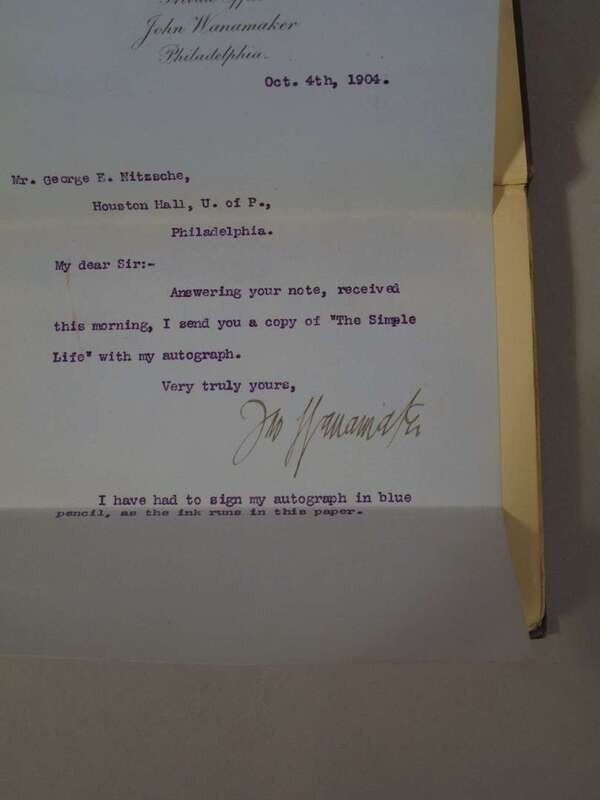 John Wanamaker
Philadelphia.
Oct. 4th, 1904.
Mr. George E. Nitzsche,
Houston Hall, U. of P.,
Philadelphia.
My dear Sir:-
Answering your note, received
this morning, I send you a copy of "The Simple
Life" with my autograph.
Very truly yours,
Jno Wanamaker
I have had to sign my autograph in blue
pencil, as the ink runs in this paper.